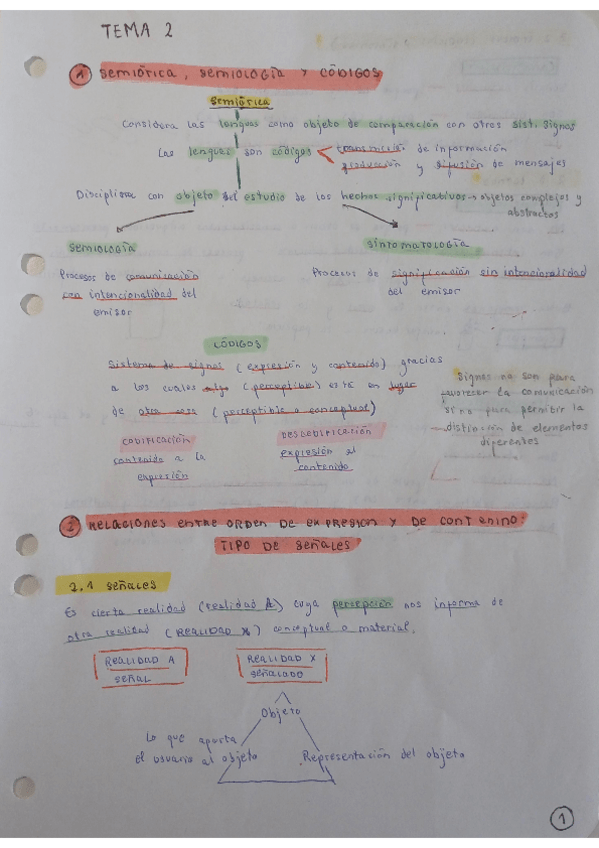 TEMA 2
1 SEMIÓTICA, SEMIOLOGÍA Y CÓDIGOS
SEMIÓTICA
Considera las lenguas como objeto de comparación con otros sist. signos
Las lenguas son códigos transmisión de información
producción y difusión de mensajes
Disciplina con objeto del estudio de los hechos significativos → objetos complejos y
abstractos
SEMIOLOGÍA
SINTOMATOLOGÍA
Procesos de comunicación
con intencionalidad del
emisor
Procesos de significación sin intencionalidad
del emisor
CÓDIGOS
Sistema de signos (expresión y contenido) gracias
a los cuales algo (perceptible) está en lugar
de otra cosa (perceptible o conceptual)
Signos no son para
favorecer la comunicación
sino para permitir la
distinción de elementos
diferentes
CODIFICACIÓN
contenido a la
expresión
DESCODIFICACIÓN
expresión al
contenido
2 RELACIONES ENTRE ORDEN DE EXPRESIÓN Y DE CONTENIDO:
TIPO DE SEÑALES
2.1 SEÑALES
Es cierta realidad (realidad A) cuya percepción nos informa de
otra realidad (REALIDAD X) conceptual o material.
REALIDAD A
SEÑAL
REALIDAD X
SEÑALADO
Objeto
Lo que aporta
el usuario al objeto
Representación del objeto
1